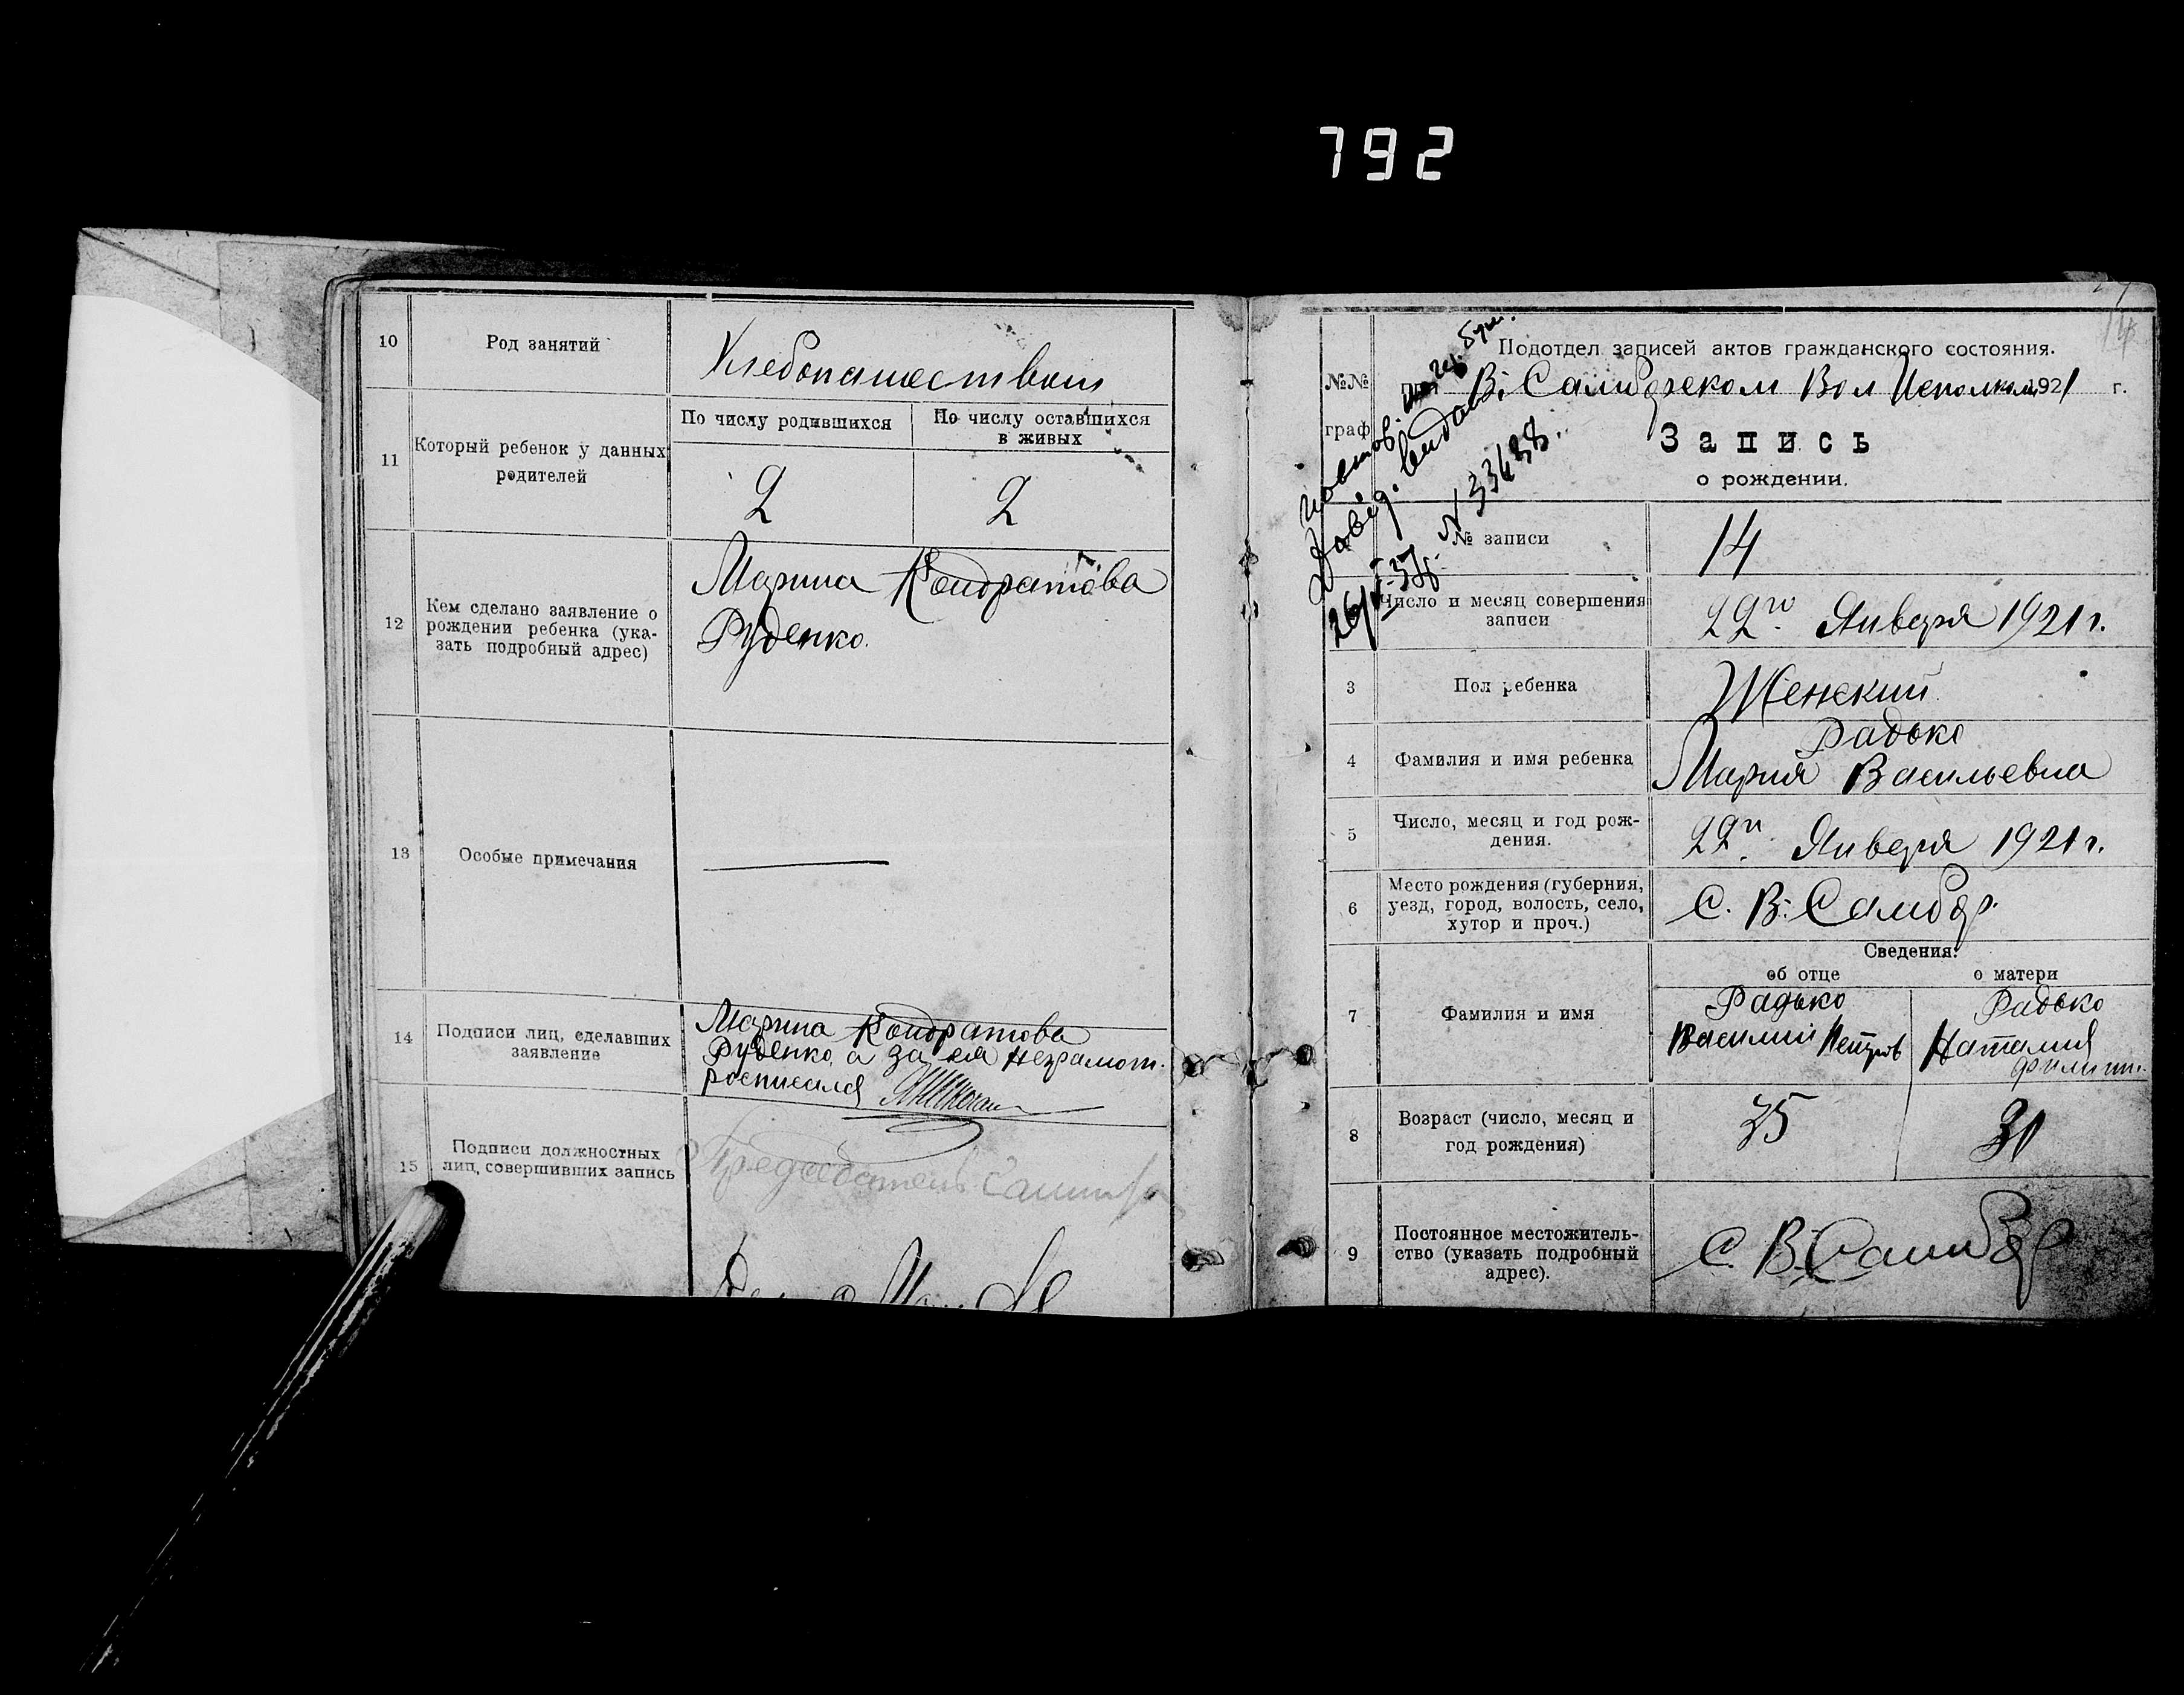 792
10
Род занятий
Хлебопашеством
11
Который ребенок у данных
родителей
По числу родившихся
По числу оставшихся
в живых
2
2
12
Кем сделано заявление о
рождении ребенка (ука-
зать подробный адрес)
Марина Кондратова
Руденко.
13
Особые примечания
14
Подписи лиц, сделавших
заявление
Марина Кондратова
Руденко, а за ея неграмот.
росписался
15
Подписи должностных
лиц, совершивших запись
Председатель
14
№№
граф
Подотдел записей актов гражданского состояния.
при В. Самборском Вол Исполкоме 1921 г.
Запись
о рождении.
повтов.
N 33438.
№ записи
14
Число и месяц совершения
записи
22го Января 1921 г.
3
Пол ребенка
Женский
4
Фамилия и имя ребенка
Радько
Мария Васильевна
5
Число, месяц и год рож-
дения.
22го Января 1921 г.
6
Место рождения (губерния,
уезд, город, волость, село,
хутор и проч.)
С. В. Самбор.
Сведения:
об отце
о матери
7
Фамилия и имя
Радько
Василий Петров
Радько
Наталия
Филипп.
8
Возраст (число, месяц и
год рождения)
35
31
9
Постоянное местожитель-
ство (указать подробный
адрес).
С. В. Самбор